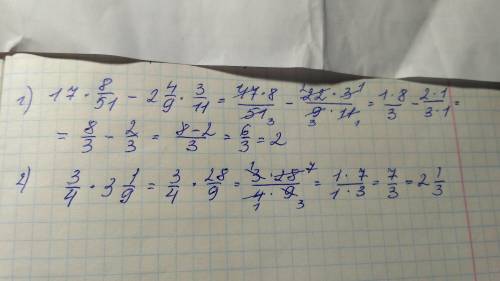 г) 17 · 8/51 − 2 4/9 · 3/11 = 17·8/51 3 − 2 22·3 1/3 9·11 1 = 1·8/3 − 2·1/3·1 =
= 8/3 − 2/3 = 8−2/3 = 6/3 = 2
г) 3/4 · 3 1/9 = 3/4 · 28/9 = 1 3·28 7/1 4·9 3 = 1·7/1·3 = 7/3 = 2 1/3